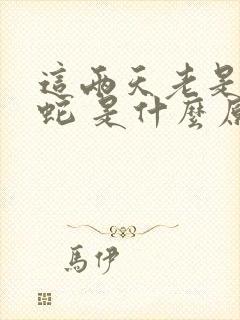 這兩天老是
蛇是什麼原
馬伊